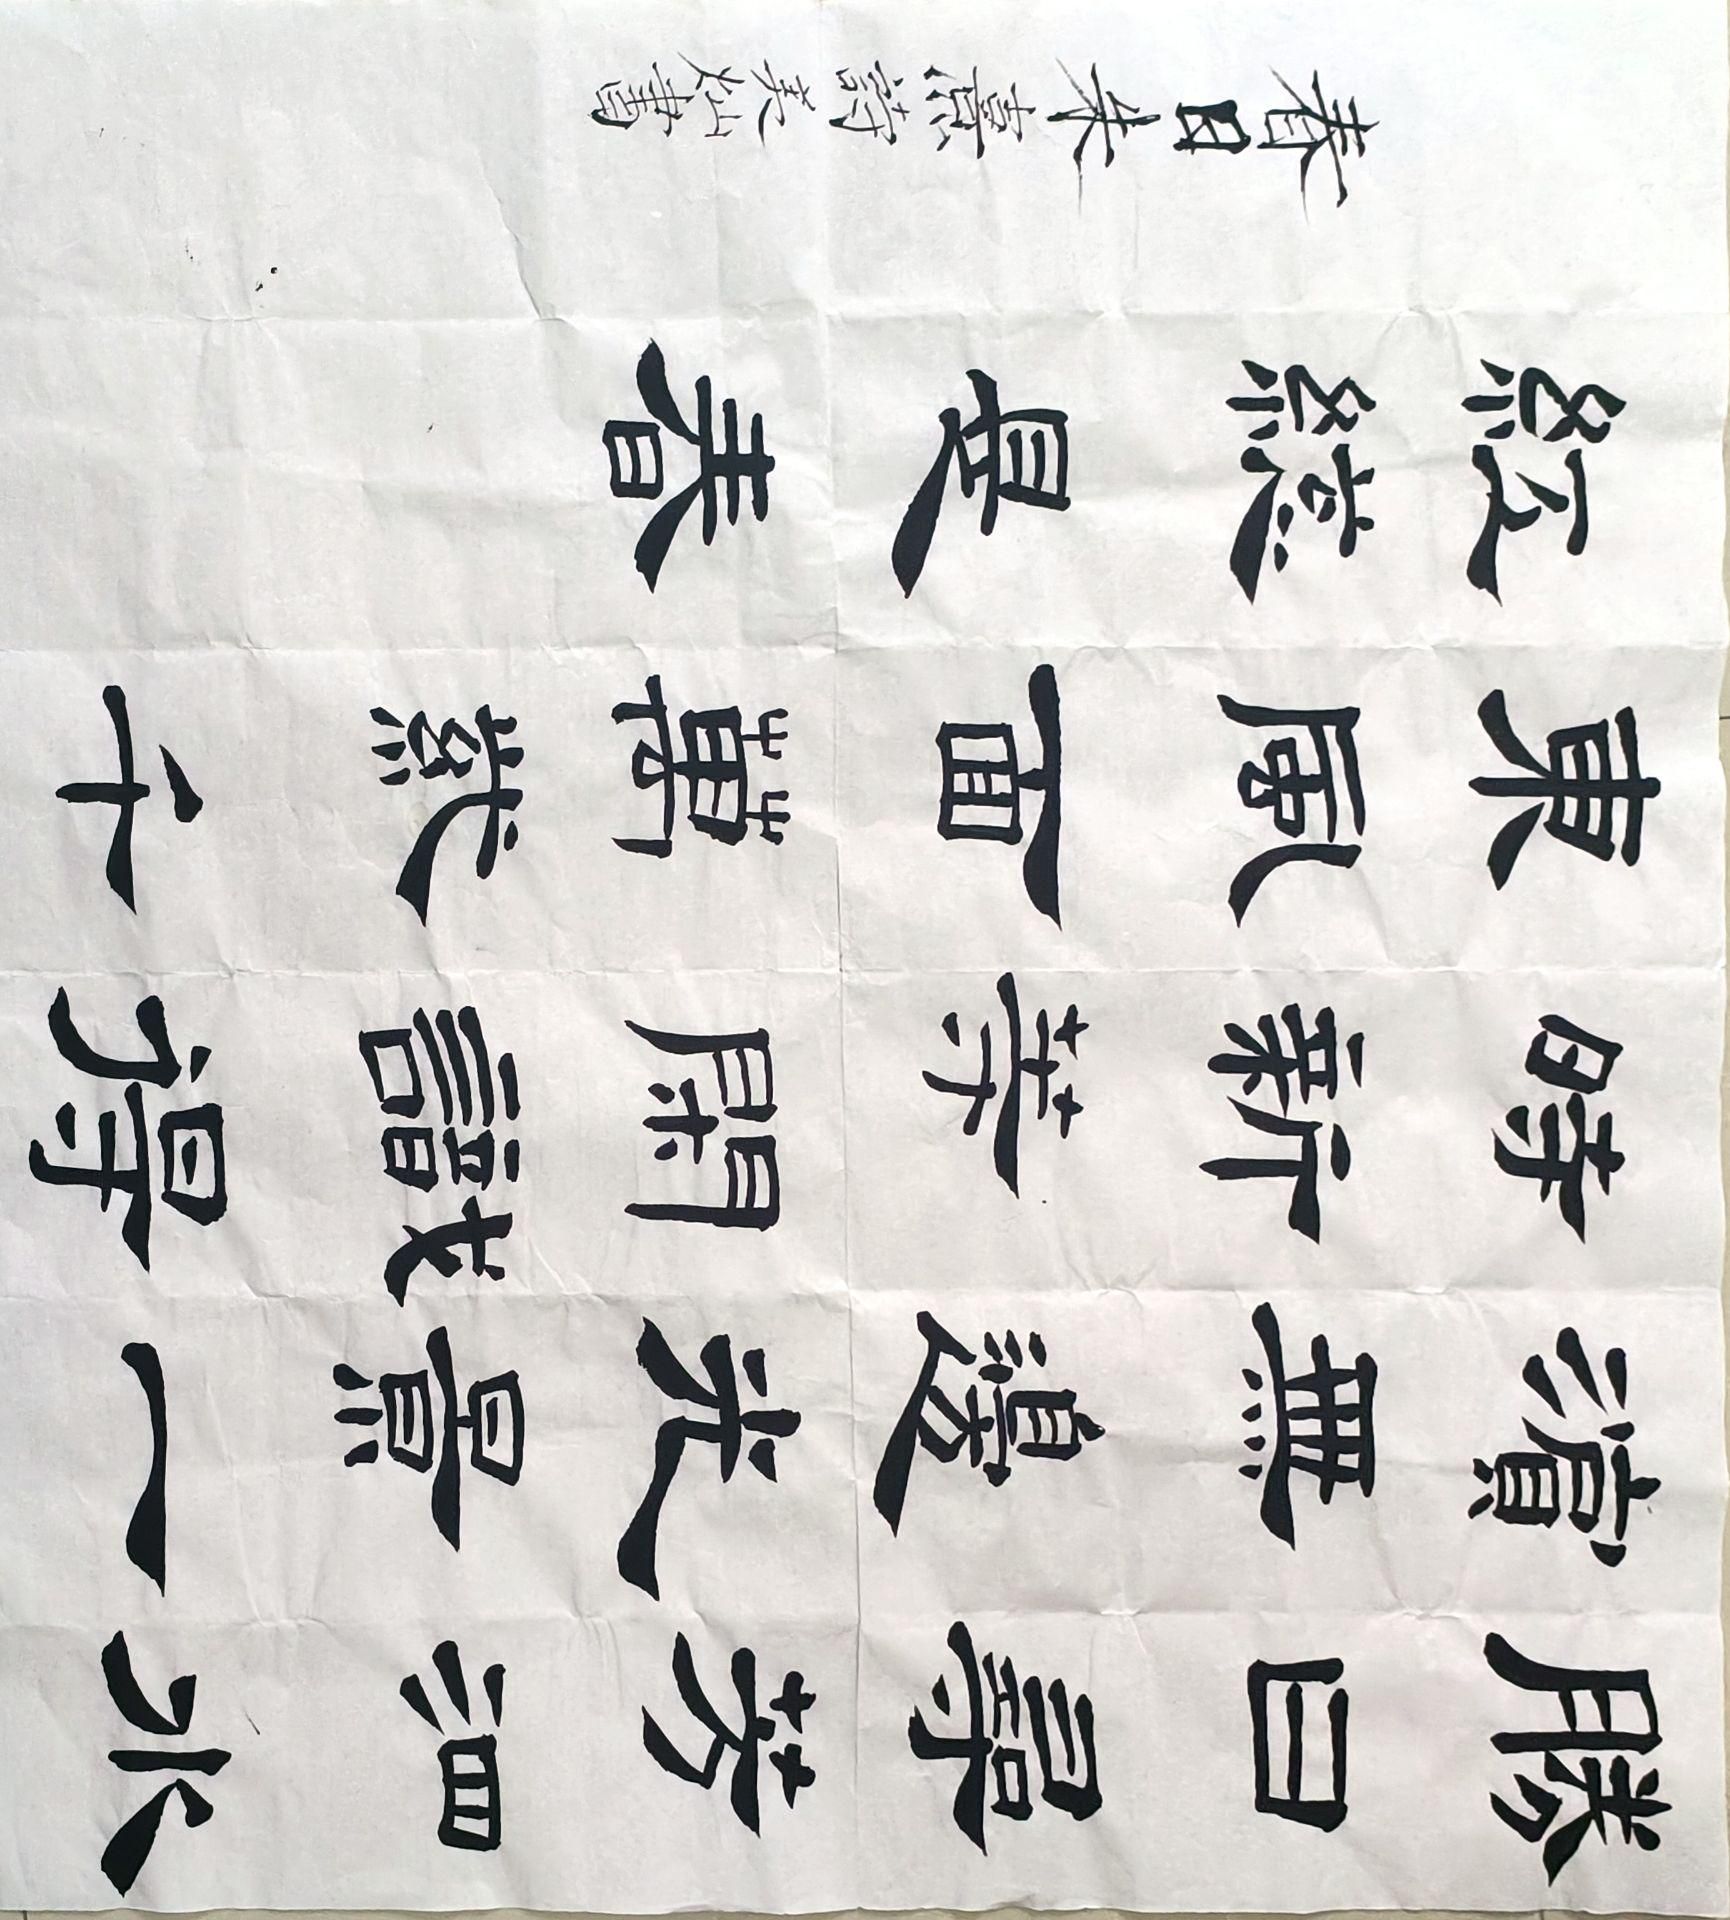 勝日尋芳泗水
濱無邊光景一
時新等閑識得
東風面萬紫千
紅總是春
春日朱熹詩奕灿書